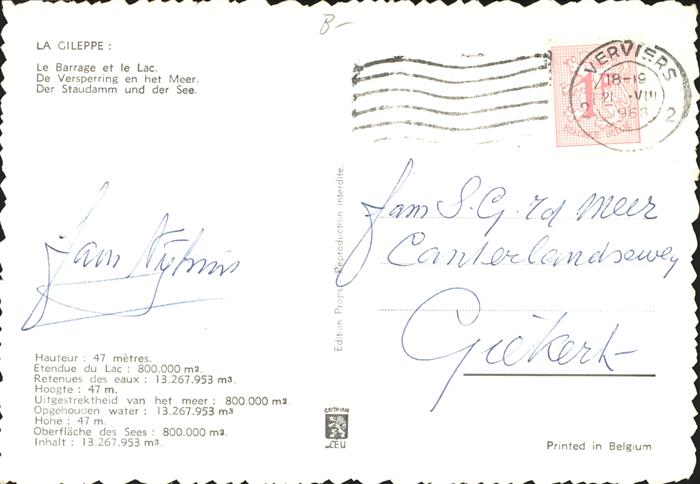 B-
LA GILEPPE :
Le Barrage et le Lac.
De Versperring en het Meer.
Der Staudamm und der See.
VERVIERS
18-19
21 VIII
196
2 2
1F
Fam S. G. vd Meer
Canterlandseweg
Giekerk
Fam Nijhuis
Edition Props. Reproduction interdite.
Hauteur : 47 mètres.
Etendue du Lac : 800.000 m2.
Retenues des eaux : 13.267.953 m3.
Hoogte : 47 m.
Uitgestrektheid van het meer : 800.000 m2.
Opgehouden water : 13.267.953 m3
Hohe : 47 m.
Oberfläche des Sees : 800.000 m2.
Inhalt : 13.267.953 m3.
carte-vue
LEU
Printed in Belgium